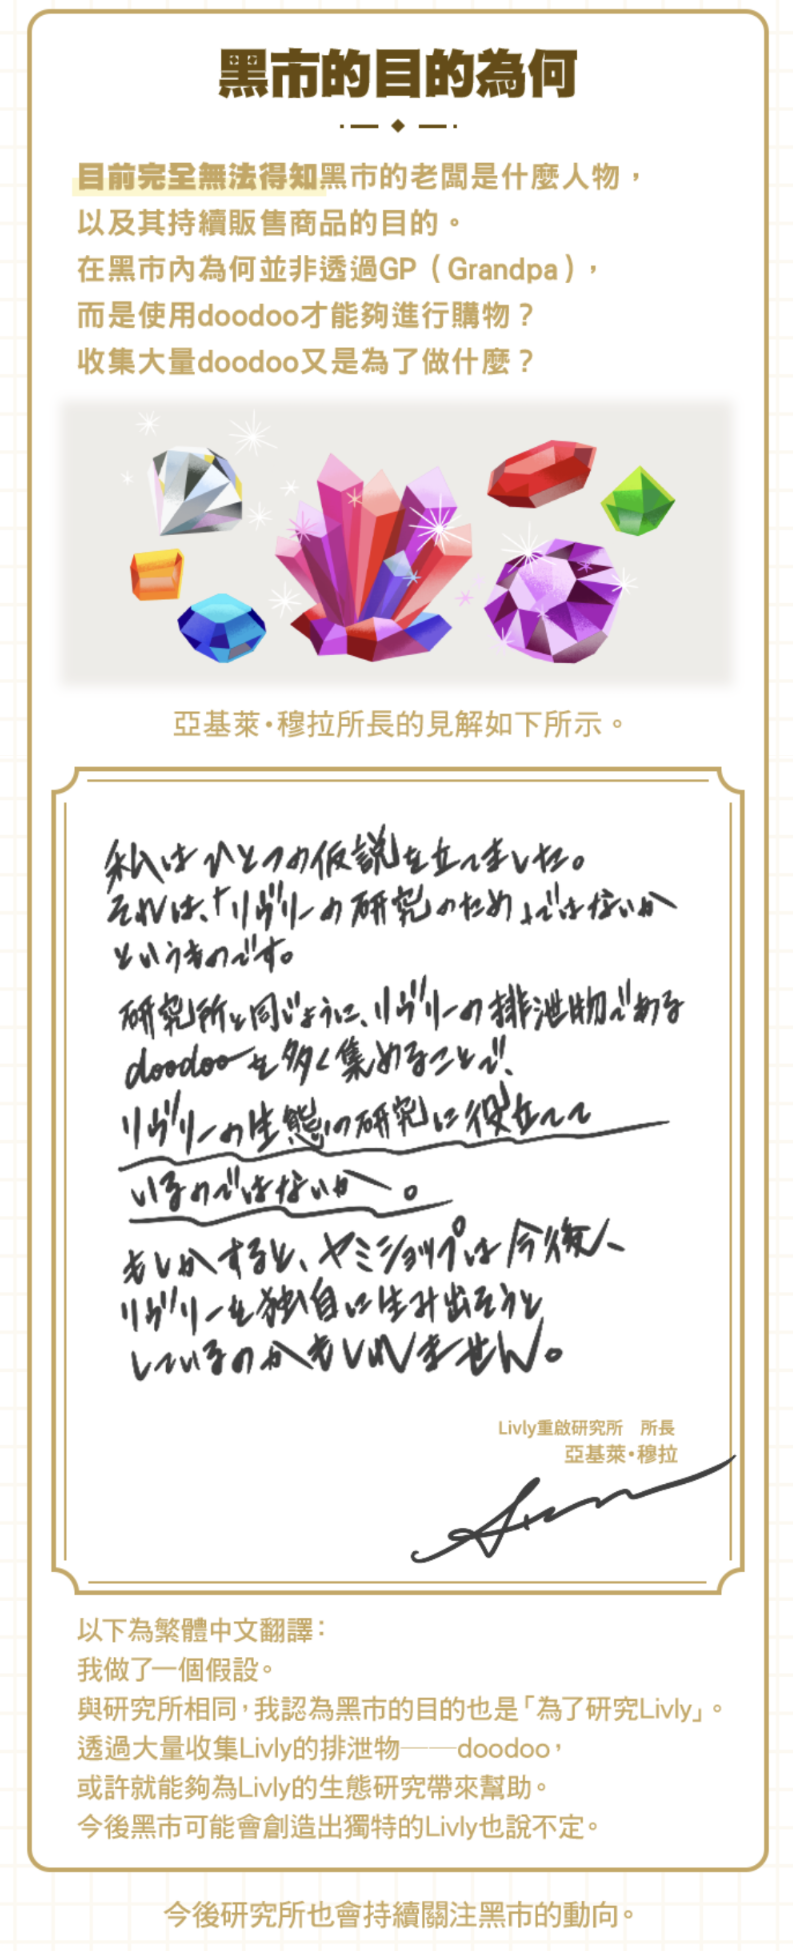 黑市的目的為何
目前完全無法得知黑市的老闆是什麼人物，
以及其持續販售商品的目的。
在黑市內為何並非透過GP（Grandpa），
而是使用doodoo才能夠進行購物？
收集大量doodoo又是為了做什麼？
亞基萊・穆拉所長的見解如下所示。
私はひとつの仮説を立てました。
それは、「リヴリーの研究のため」ではないか
というものです。
研究所と同じように、リヴリーの排泄物である
doodooを多く集めることで、
リヴリーの生態の研究に役立てて
いるのではないか。
もしかすると、ヤミショップは今後、
リヴリーを独自に生み出そうと
しているのかもしれません。
Livly重啟研究所　所長
亞基萊・穆拉
以下為繁體中文翻譯：
我做了一個假設。
與研究所相同，我認為黑市的目的也是「為了研究Livly」。
透過大量收集Livly的排泄物——doodoo，
或許就能夠為Livly的生態研究帶來幫助。
今後黑市可能會創造出獨特的Livly也說不定。
今後研究所也會持續關注黑市的動向。